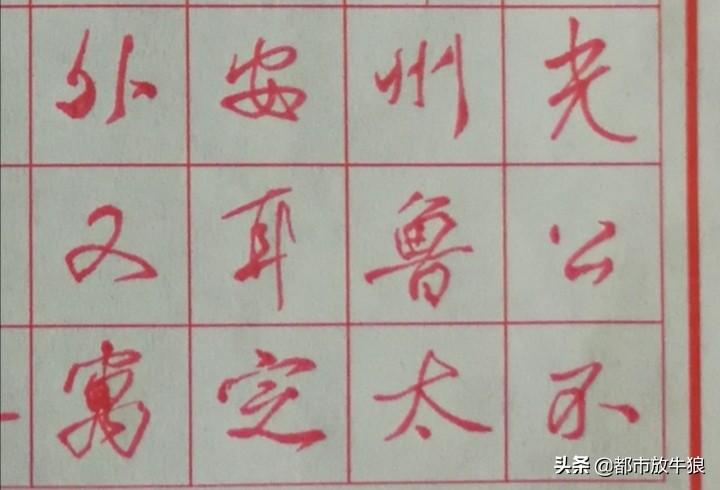 光公不
州鲁太
安耳定
外又寓
头条 @都市放牛狼